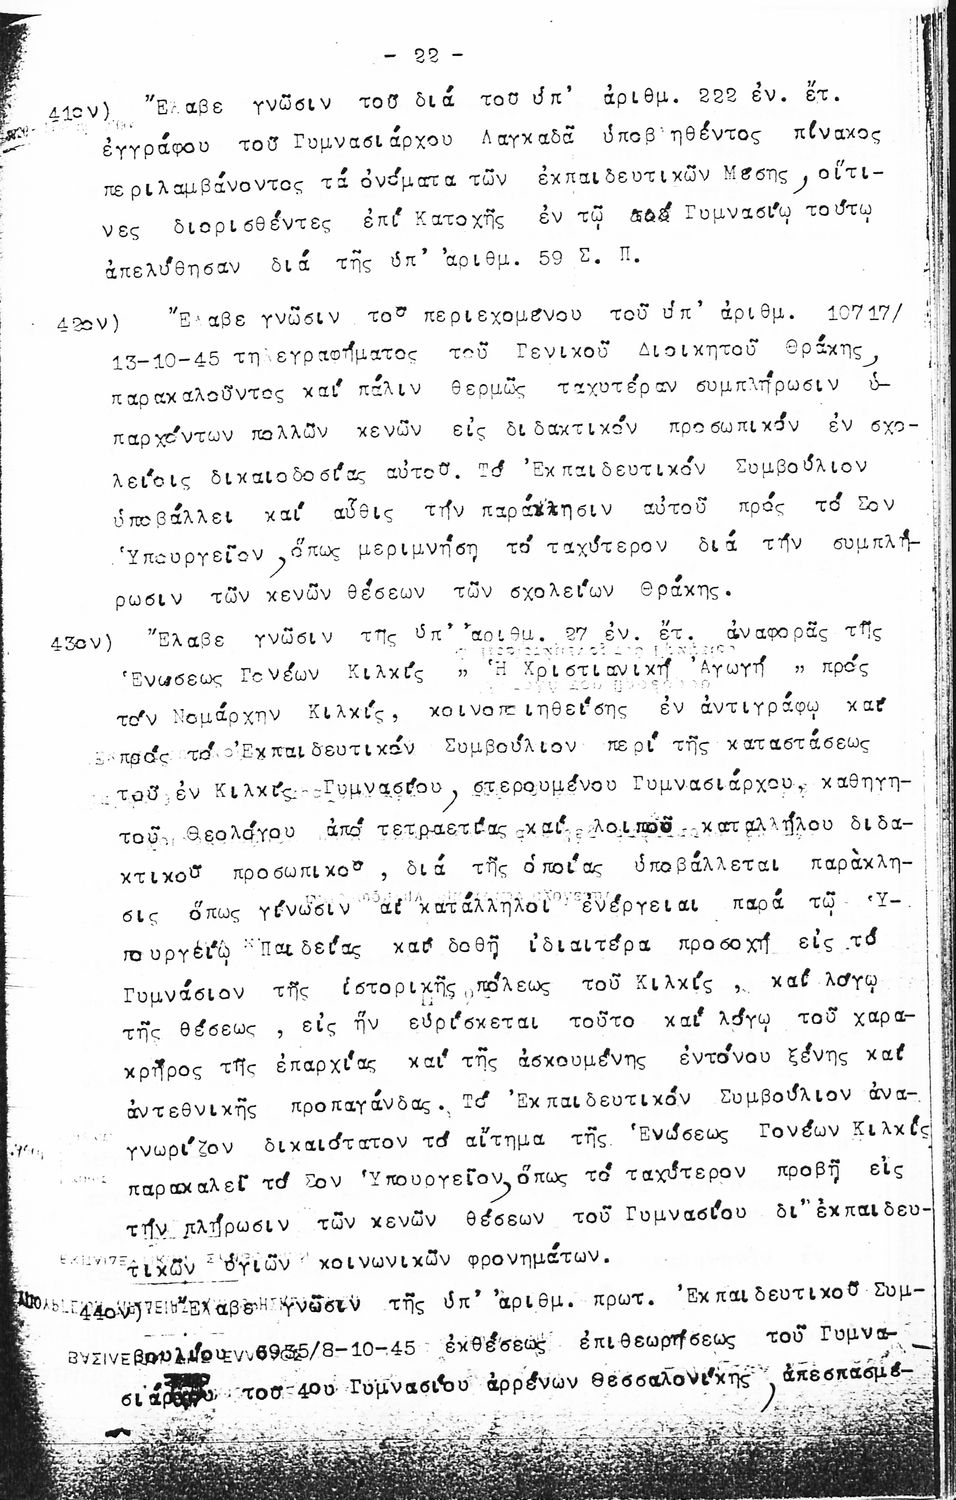 - 22 -
41ον) Ἔλαβε γνῶσιν τοῦ διά τοῦ ὑπ' ἀριθμ. 222 ἐν. ἔτ.
ἐγγράφου τοῦ Γυμνασιάρχου Λαγκαδᾶ ὑποβληθέντος πίνακος
περιλαμβάνοντος τά ὀνόματα τῶν ἐκπαιδευτικῶν Μέσης, οἵτι-
νες διορισθέντες ἐπί Κατοχῆς ἐν τῷ Γυμνασίῳ τούτῳ
ἀπελύθησαν διά τῆς ὑπ' ἀριθμ. 59 Σ. Π.
42ον) Ἔλαβε γνῶσιν τοῦ περιεχομένου τοῦ ὑπ' ἀριθμ. 10717/
13-10-45 τηλεγραφήματος τοῦ Γενικοῦ Διοικητοῦ Θράκης,
παρακαλοῦντος καί πάλιν θερμῶς ταχυτέραν συμπλήρωσιν ὑ-
παρχόντων πολλῶν κενῶν εἰς διδακτικόν προσωπικόν ἐν σχο-
λείοις δικαιοδοσίας αὐτοῦ. Τό Ἐκπαιδευτικόν Συμβούλιον
ὑποβάλλει καί αὖθις τήν παράκλησιν αὐτοῦ πρός τό Σον
Ὑπουργεῖον, ὅπως μεριμνήσῃ τό ταχύτερον διά τήν συμπλή-
ρωσιν τῶν κενῶν θέσεων τῶν σχολείων Θράκης.
43ον) Ἔλαβε γνῶσιν τῆς ὑπ' ἀριθμ. 27 ἐν. ἔτ. ἀναφορᾶς τῆς
Ἑνώσεως Γονέων Κιλκίς " Ἡ Χριστιανική Ἀγωγή " πρός
τόν Νομάρχην Κιλκίς, κοινοποιηθείσης ἐν ἀντιγράφῳ καί
πρός τό Ἐκπαιδευτικόν Συμβούλιον περί τῆς καταστάσεως
τοῦ ἐν Κιλκίς Γυμνασίου, στερουμένου Γυμνασιάρχου, καθηγη-
τοῦ Θεολόγου ἀπό τετραετίας καί λοιποῦ καταλλήλου διδα-
κτικοῦ προσωπικοῦ, διά τῆς ὁποίας ὑποβάλλεται παράκλη-
σις ὅπως γίνωσιν αἱ κατάλληλοι ἐνέργειαι παρά τῷ Ὑ-
πουργείῳ Παιδείας καί δοθῇ ἰδιαιτέρα προσοχή εἰς τό
Γυμνάσιον τῆς ἱστορικῆς πόλεως τοῦ Κιλκίς, καί λόγῳ
τῆς θέσεως, εἰς ἥν εὑρίσκεται τοῦτο καί λόγῳ τοῦ χαρα-
κρῆρος τῆς ἐπαρχίας καί τῆς ἀσκουμένης ἐντόνου ξένης καί
ἀντεθνικῆς προπαγάνδας. Τό Ἐκπαιδευτικόν Συμβούλιον ἀνα-
γνωρίζον δικαιότατον τό αἴτημα τῆς Ἑνώσεως Γονέων Κιλκίς
παρακαλεῖ τό Σον Ὑπουργεῖον, ὅπως τό ταχύτερον προβῇ εἰς
τήν πλήρωσιν τῶν κενῶν θέσεων τοῦ Γυμνασίου δι' ἐκπαιδευ-
τικῶν ὑγιῶν κοινωνικῶν φρονημάτων.
44ον) Ἔλαβε γνῶσιν τῆς ὑπ' ἀριθμ. πρωτ. Ἐκπαιδευτικοῦ Συμ-
βουλίου 6935/8-10-45 ἐκθέσεως ἐπιθεωρήσεως τοῦ Γυμνα-
σιάρχου τοῦ 4ου Γυμνασίου ἀρρένων Θεσσαλονίκης, ἀπεσπασμέ-